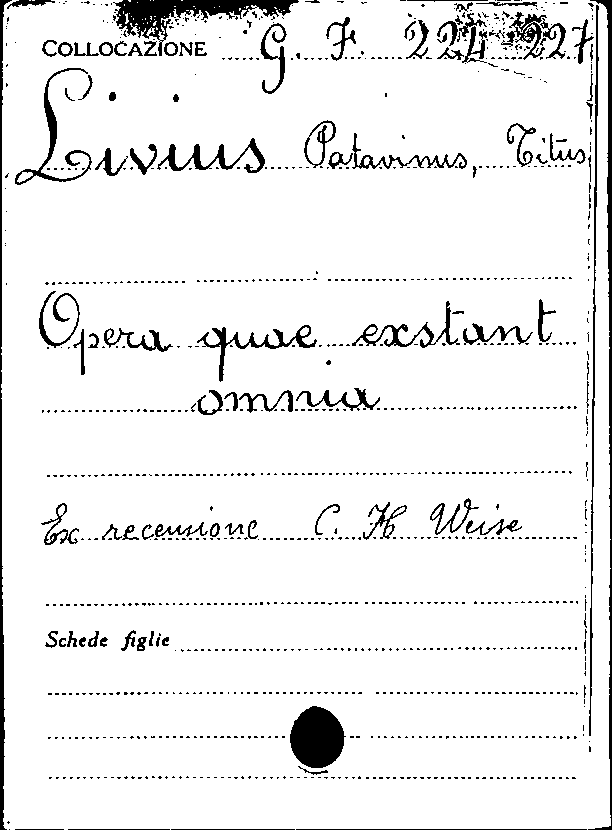 COLLOCAZIONE G. F. 224-227
Livius Patavinus, Titus
Opera quae exstant
omnia
Ex recensione C. H Weise
Schede figlie